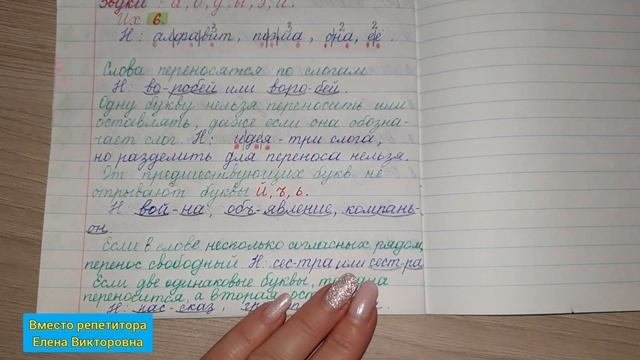 Звуки: а, о, у, ы, э, и.
Их 6.
Н: алфавит, поэма, она, её.
3 3 2 2
Слова переносятся по слогам
Н: во-робей или воро-бей.
Одну букву нельзя переносить или
оставлять, даже если она обозна-
чает слог. Н: идея - три слога,
но разделить для переноса нельзя.
От предшествующих букв не
отрывают буквы й, ъ, ь.
Н: вой-на, объ-явление, компань-
он.
Если в слове несколько согласных рядом,
перенос свободный Н: сес-тра или сест-ра
Если две одинаковые буквы, то одна
переносится, а вторая
Н: рас-сказ,
Вместо репетитора
Елена Викторовна